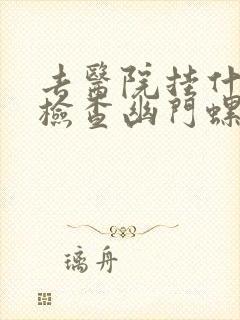 去醫院挂什
檢查幽門螺
璃舟